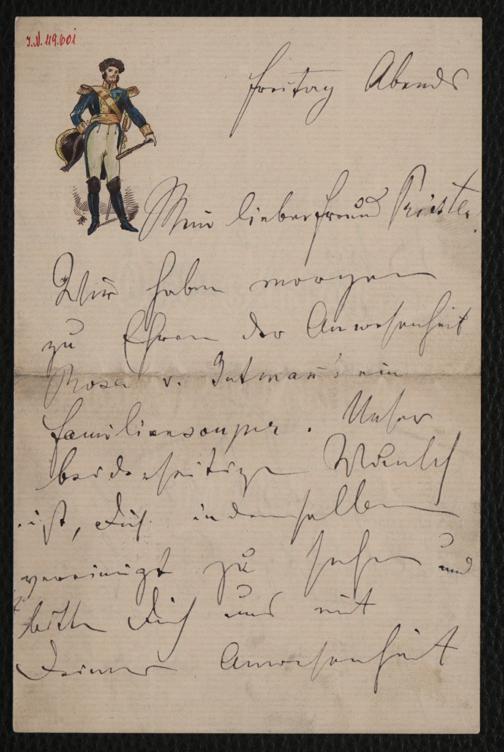 J.N. 49.601
Freitag Abends
Mein lieber Freund Priester.
Wir haben morgen
zu Ehren der Anwesenheit
Rosa v. Gutmann's ein
Familiensouper. Unser
beiderseitiger Wunsch
ist, Dich in demselben
vereinigt zu sehen und
bitte Dich uns mit
Deiner Anwesenheit